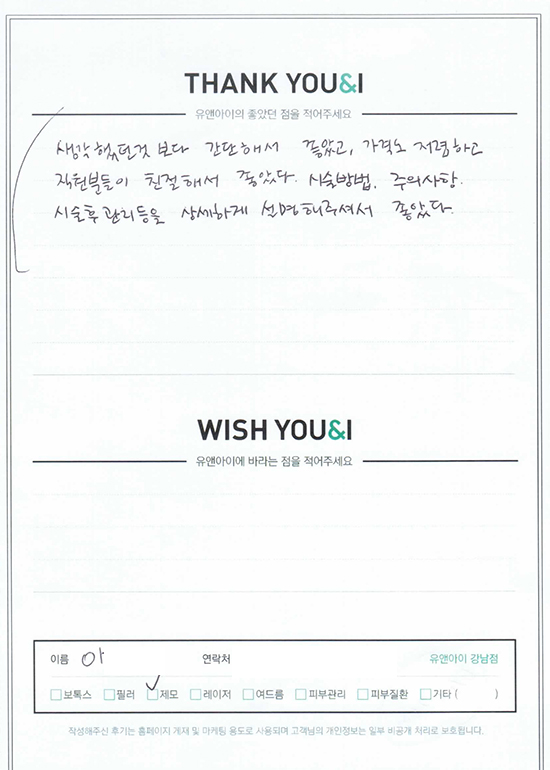 THANK YOU&I
유앤아이의 좋았던 점을 적어주세요
생각했던것 보다 간단해서 좋았고, 가격도 저렴하고
직원분들이 친절해서 좋았다. 시술방법, 주의사항.
시술후 관리등을 상세하게 설명해주셔서 좋았다.
WISH YOU&I
유앤아이에 바라는 점을 적어주세요
이름 아 연락처 유앤아이 강남점
보톡스 필러 제모 레이저 여드름 피부관리 피부질환 기타 ( )
작성해주신 후기는 홈페이지 게재 및 마케팅 용도로 사용되며 고객님의 개인정보는 일부 비공개 처리로 보호됩니다.